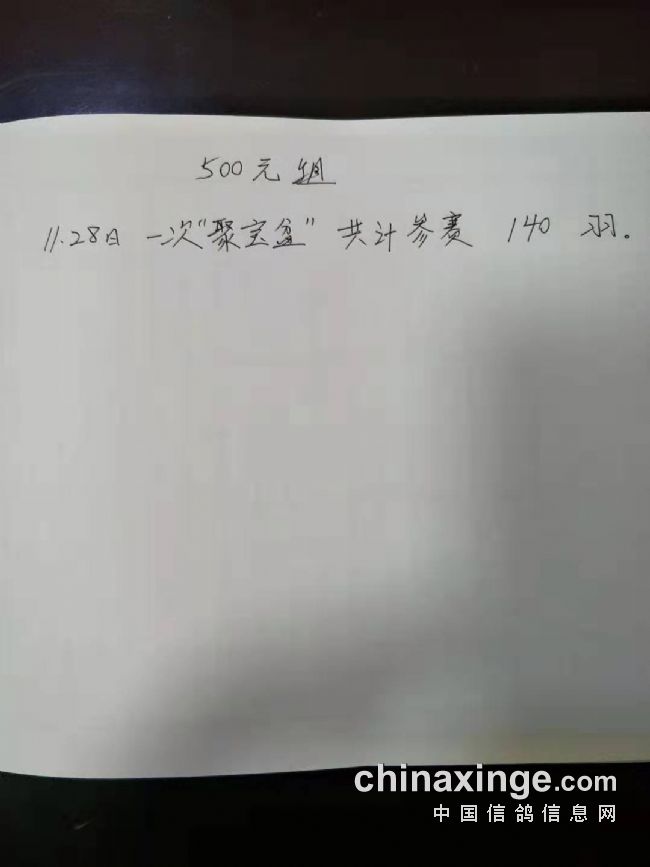 500元组
11.28日 一次"聚宝盆" 共计参赛 140 羽.
chinaxinge.com
中国信鸽信息网